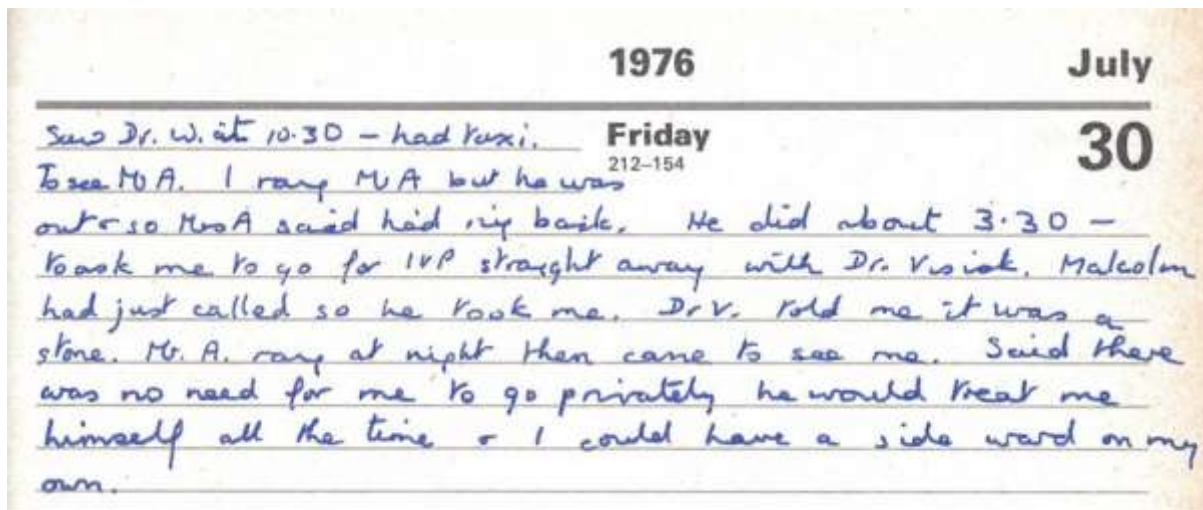 1976 July
Saw Dr. W. at 10.30 – had taxi. Friday 30
212–154
To see Mr A. I rang Mr A but he was
out & so Mrs A said he'd ring back. He did about 3.30 –
to ask me to go for IVP straight away with Dr. Malcolm
had just called so he took me. Dr V. told me it was a
stone. Mr. A. rang at night then came to see me. Said there
was no need for me to go privately he would treat me
himself all the time & I could have a side ward on my
own.